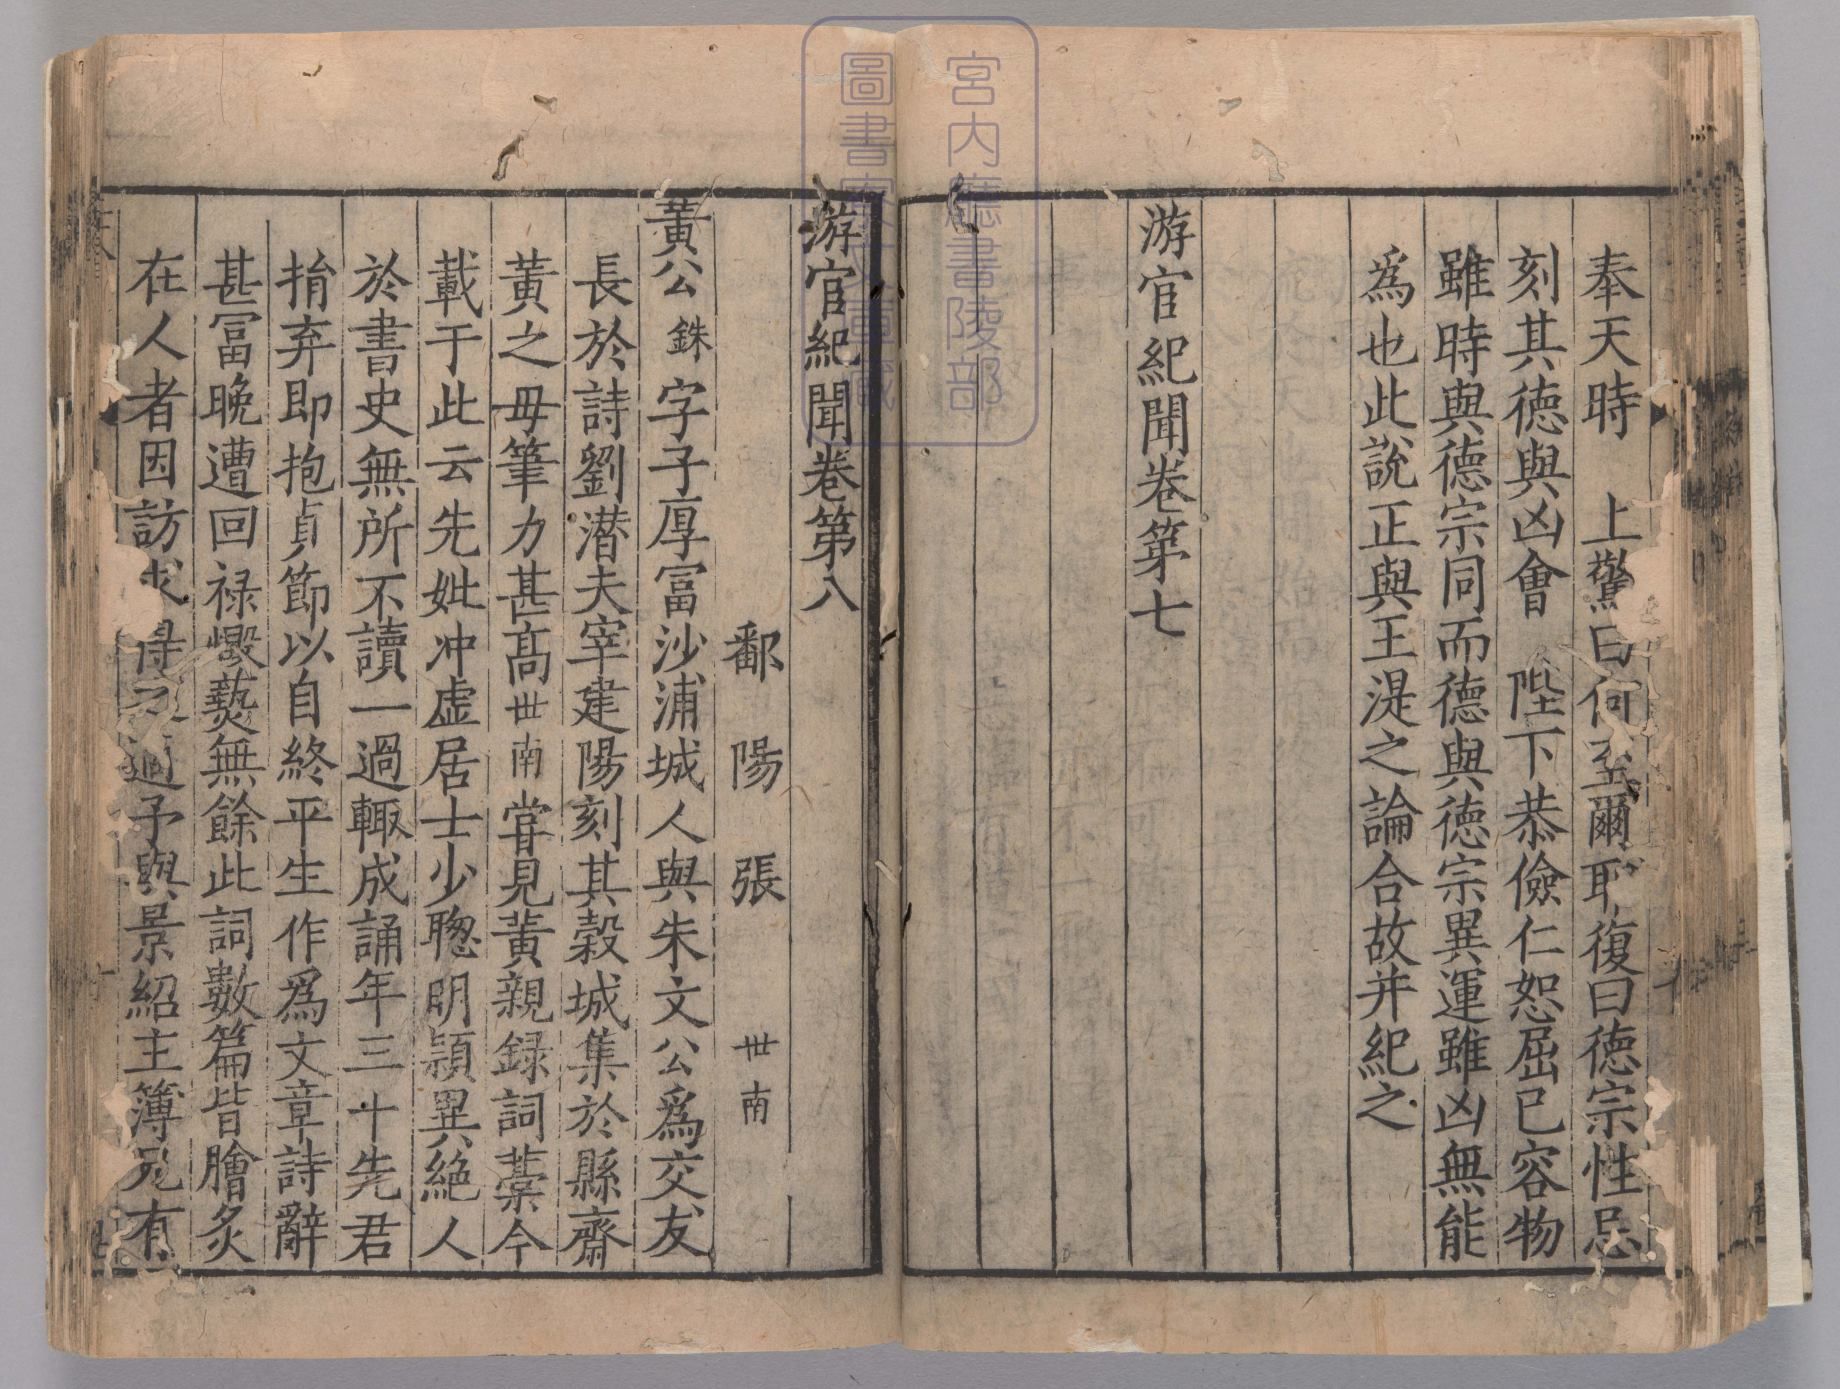 奉天時　上驚曰何至爾耶復曰徳宗性忌
刻其徳與凶會　陛下恭儉仁恕屈已容物
雖時與德宗同而德與徳宗異運雖凶無能
爲也此說正與王湜之論合故并紀之
游宦紀聞卷第七
游宦紀聞卷第八
鄱陽張世南
黃公銖字子厚冨沙浦城人與朱文公爲交友
長於詩劉潜夫宰建陽刻其穀城集於縣齋
黃之母筆力甚髙世南甞見黃親録詞藁今
載于此云先妣冲虚居士少聦明頴異絶人
於書史無所不讀一過輙成誦年三十先君
捐弃即抱貞節以自終平生作爲文章詩辭
甚冨晚遭回禄燬爇無餘此詞數篇皆膾炙
在人者因訪求得之適予與景紹主簿兄有
宮内廳書陵部
圖書寮文庫藏